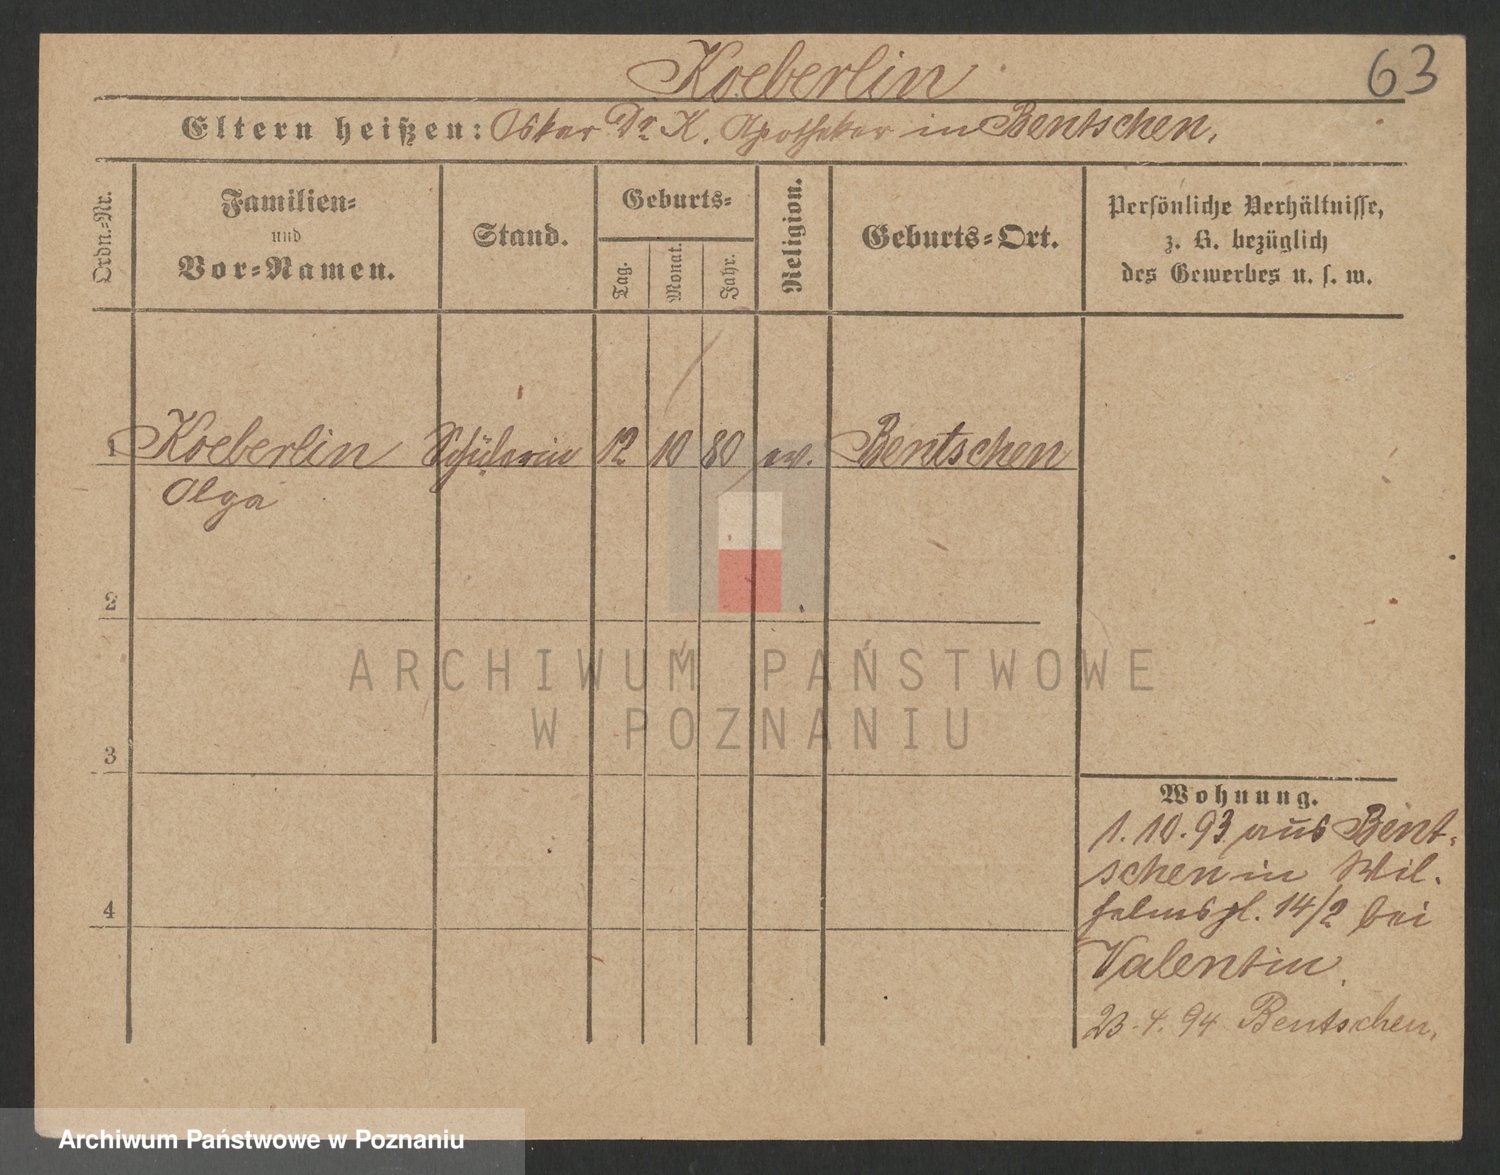 63
Koeberlin
Eltern heißen: Oskar Dr. K. Apotheker in Bentschen.
Ordn.-Nr.
Familien-
und
Vor-Namen.
Stand.
Geburts-
Tag.
Monat.
Jahr.
Religion.
Geburts-Ort.
Persönliche Verhältnisse,
z. B. bezüglich
des Gewerbes u. s. w.
1 Koeberlin Schülerin 12 10 80 ev. Bentschen
Olga
2
ARCHIWUM PAŃSTWOWE
W POZNANIU
3
Wohnung.
1. 10. 93 aus Bent-
schen in Wil-
helmspl. 14/2 bei
4
Valentin.
23. 4. 94 Bentschen.
Archiwum Państwowe w Poznaniu